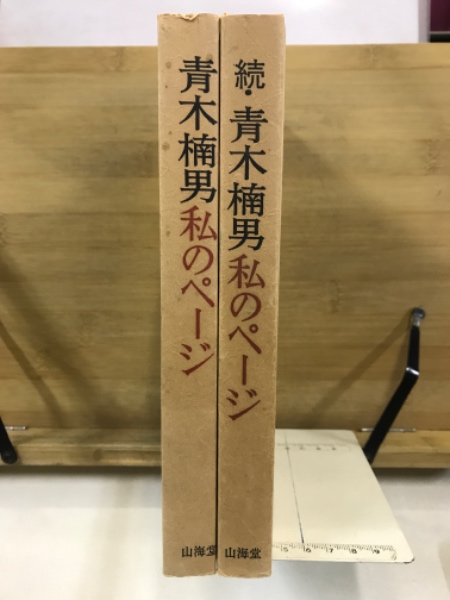 続・青木楠男私のページ
山海堂
青木楠男私のページ
山海堂
5 6 7 8 9